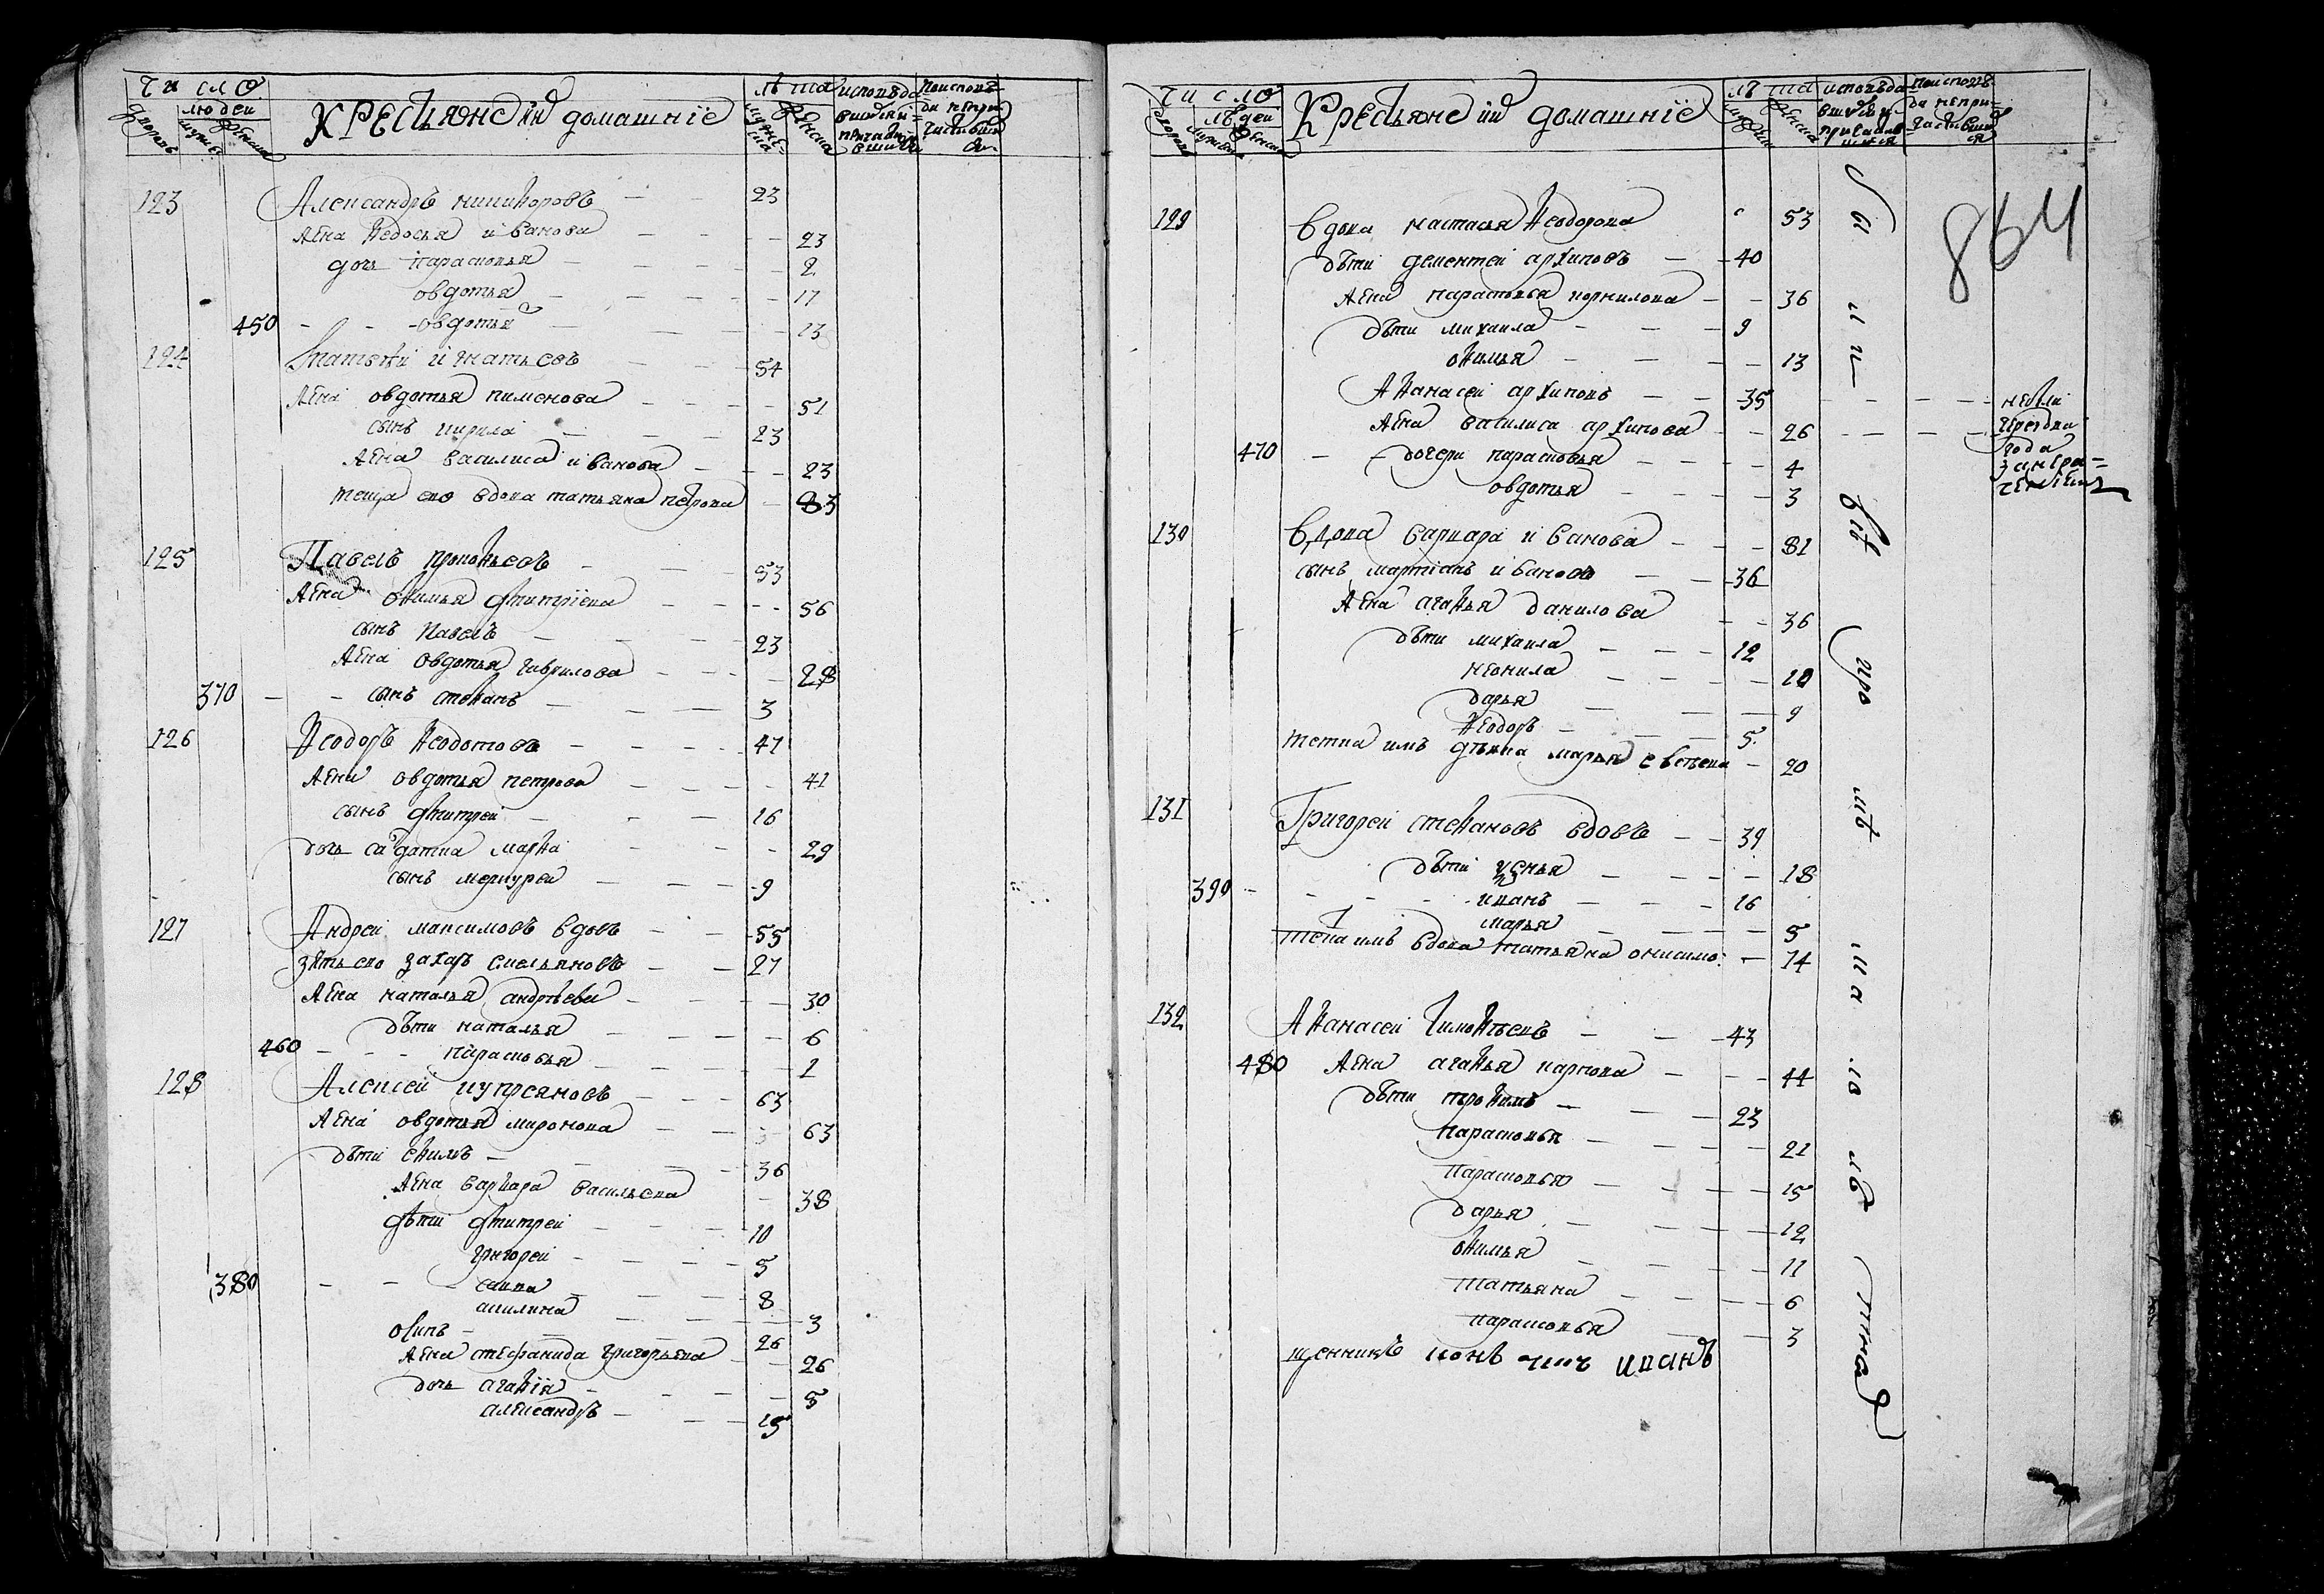 Число
людеи
дворовъ мужеска женска
Крестьяне и ихъ домашнїе
лѣта
мужеска женска
исповѣдавшихся и причастившихся
по исповѣди не причастившихся
123 Александръ никиѳоровъ 23
жена ѳедосья иванова 23
дочь парасковья 2
овдотья 17
450 овдотья 13
124 игнатьевъ 54
жена овдотья пименова 51
сынъ кирила 23
жена василиса иванова 23
теща ево вдова татьяна петрова 83
125 Павелъ прокоѳьевъ 53
жена оѳимья дмитрїева 56
сынъ павелъ 23
жена овдотья гаврилова 28
370 сынъ стеѳанъ 3
126 Ѳеодоръ Ѳеодотовъ 47
жена овдотья петрова 41
сынъ дмитреи 16
дочь салдатка марѳа 29
сынъ меркуреи 9
127 Андреи максимовъ вдовъ 55
зять ево захаръ емельяновъ 27
жена наталья андрѣева 30
дѣти наталья 6
460 парасковья 1
128 Алексеи купреяновъ 63
жена овдотья миронова 63
дѣти еѳимъ 36
жена варвара васильева 38
дѣти дмитреи 10
григореи 5
380 савва 8
акилина 3
осипъ 26
жена стефанида григорьева 26
дочь агаѳїя 5
александръ 15
Число
людеи
дворовъ мужеска женска
Крестьяне и ихъ домашнїе
лѣта
мужеска женска
исповѣдавшихся и причастившихся
по исповѣди не причастившихся
864
129 вдова настасья Ѳеодорова 53
дѣти дементеи архиповъ 40
жена парасковья корнилова 36
дѣти михаила 9
оѳимья 13
Аѳанасеи архиповъ 35
жена василиса архипова 26
470 дочери парасковья 4
овдотья 3
130 Вдова варвара иванова 81
сынъ мартїанъ ивановъ 36
жена агаѳья данилова 36
дѣти михаила 12
неонила 10
дарья 9
Ѳеодоръ 5
тетка имъ дѣвка марья евсѣева 20
131 Григореи стеѳановъ вдовъ 39
дѣти 18
390 иванъ 16
марья 5
вдова татьяна онисимо: 74
132 Аѳанасеи тимоѳѣевъ 43
480 жена агаѳья карпова 44
дѣти троѳимъ 23
парасковья 21
парасковья 15
дарья 12
оѳимья 11
татьяна 6
парасковья 3
щенникъ иванъ